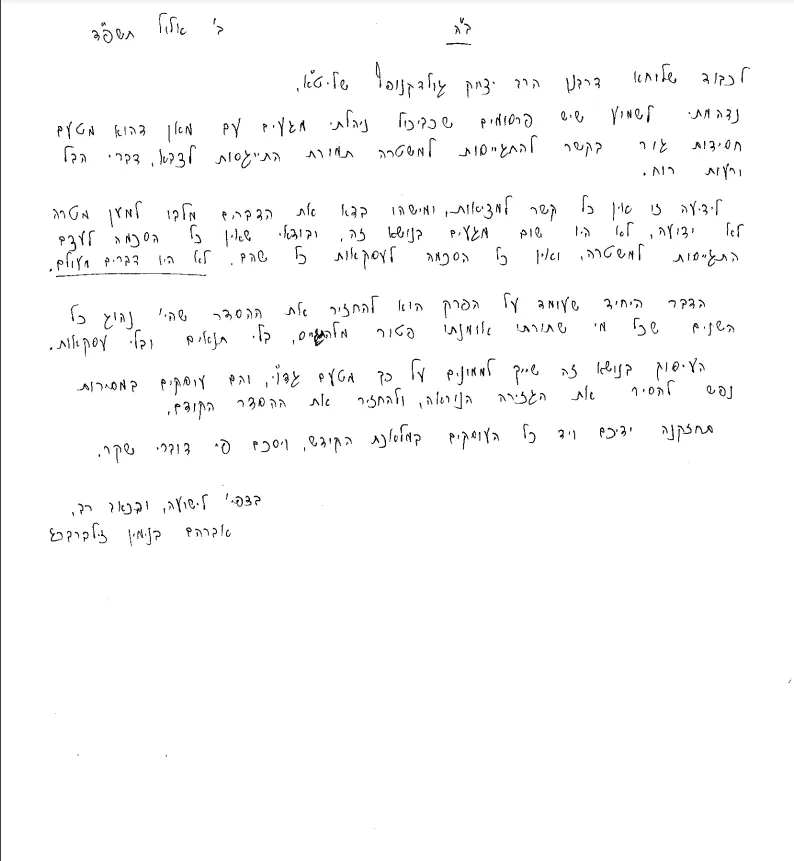 ב"ה
ב' אלול תשפ"ד
לכבוד שלוחא דרבנן הרב יצחק גולדקנופף שליט"א,
נדהמתי לשמוע שיש פרסומים שכביכול ניהלתי מגעים עם מאן דהוא מטעם
חסידות גור בקשר להתגייסות למשטרה תמורת התייגסות לצבא, דברי הבל
ורעות רוח.
לידיעה זו אין כל קשר למציאות, ומישהו בדא את הדברים מלבו למען מטרה
לא ידועה, לא היו שום מגעים בנושא זה, ובודאי שאין כל הסכמה לעצם
התגייסות למשטרה, ואין כל הסכמה לעסקאות כל שהם. לא היו דברים מעולם.
הדבר היחיד שעומד על הפרק הוא להחזיר את ההסדר שהי' נהוג כל
השנים שכל מי שתורתו אומנתו פטור מלהתגייס, בלי תנאים ובלי עסקאות.
העיסוק בנושא זה שייך לממונים על כך מטעם גדו"י, והם עוסקים במסירות
נפש להסיר את הגזירה הנוראה, ולהחזיר את ההסדר הקודם.
תחזקנה ידיכם ויד כל העוסקים במלאכת הקודש, ויסכר פי דוברי שקר.
בצפי' לישועה, ובכאב רב,
אברהם בנימין זילברברג